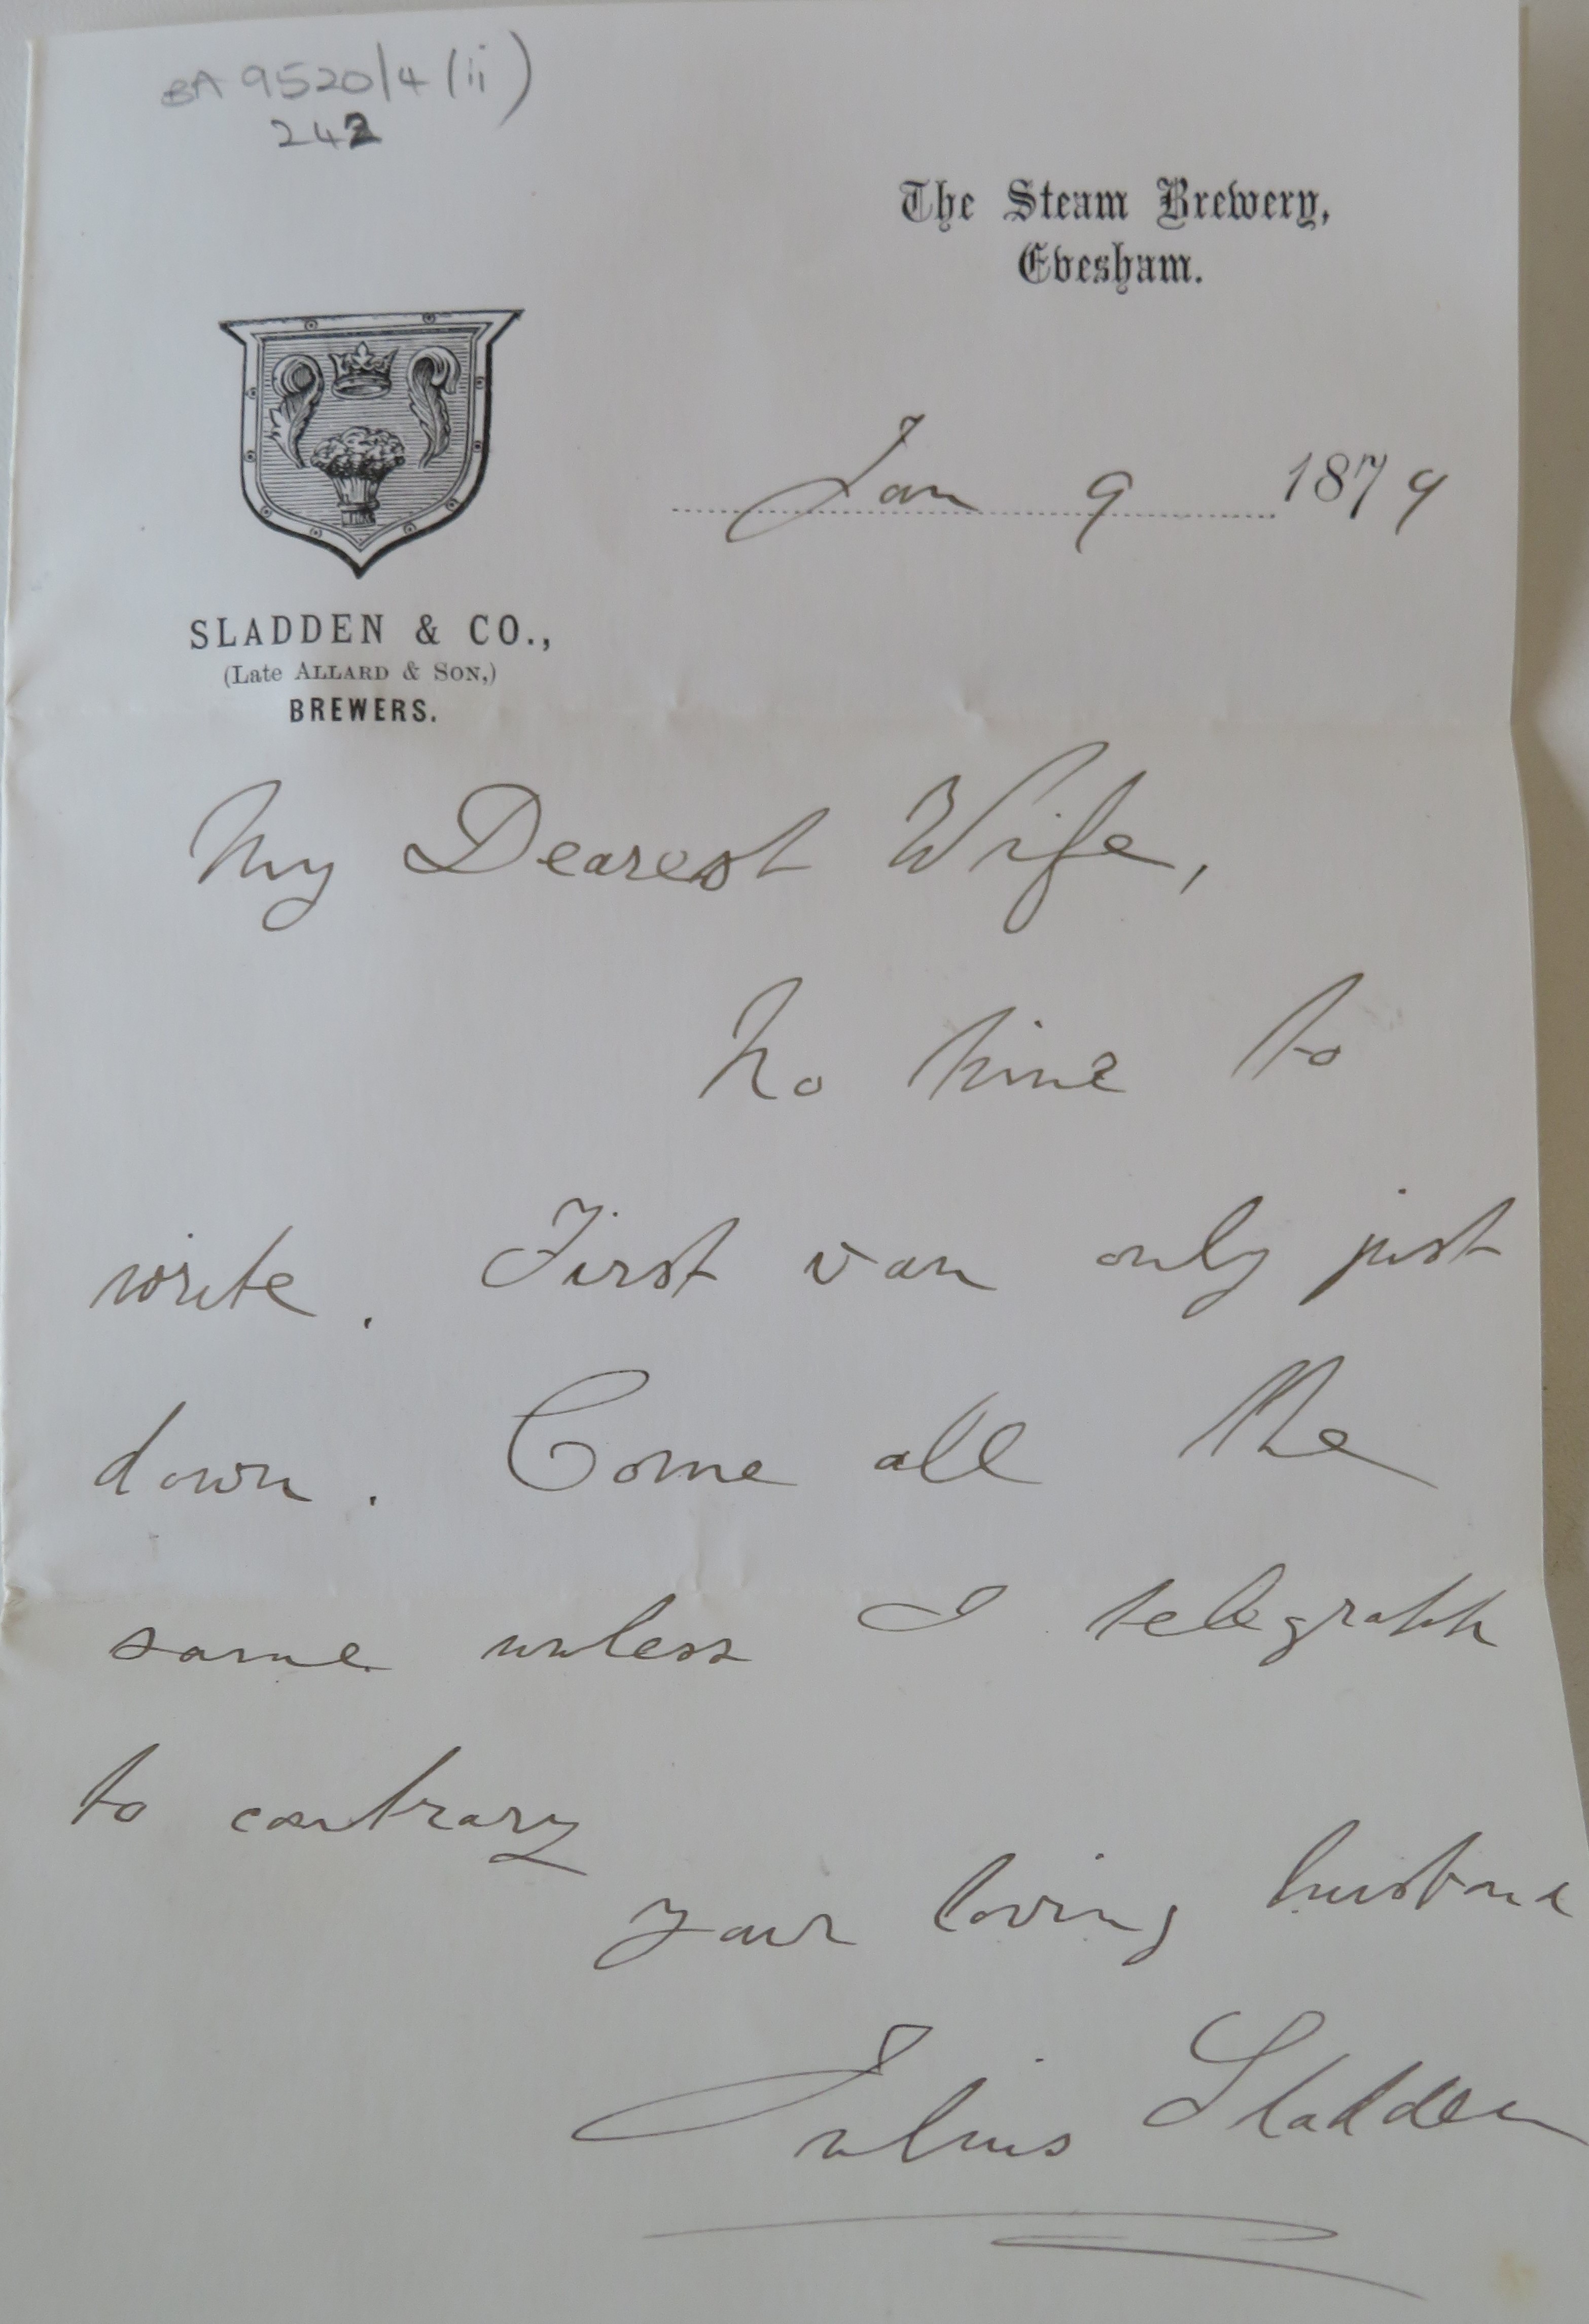 BA 9520/4 (ii)
242
The Steam Brewery,
Evesham.
Jan 9 1879
SLADDEN & CO.,
(Late ALLARD & SON,)
BREWERS.
My Dearest Wife,
No time to
write. First van only just
down. Come all the
same unless I telegraph
to contrary
your loving husband
Julius Sladden